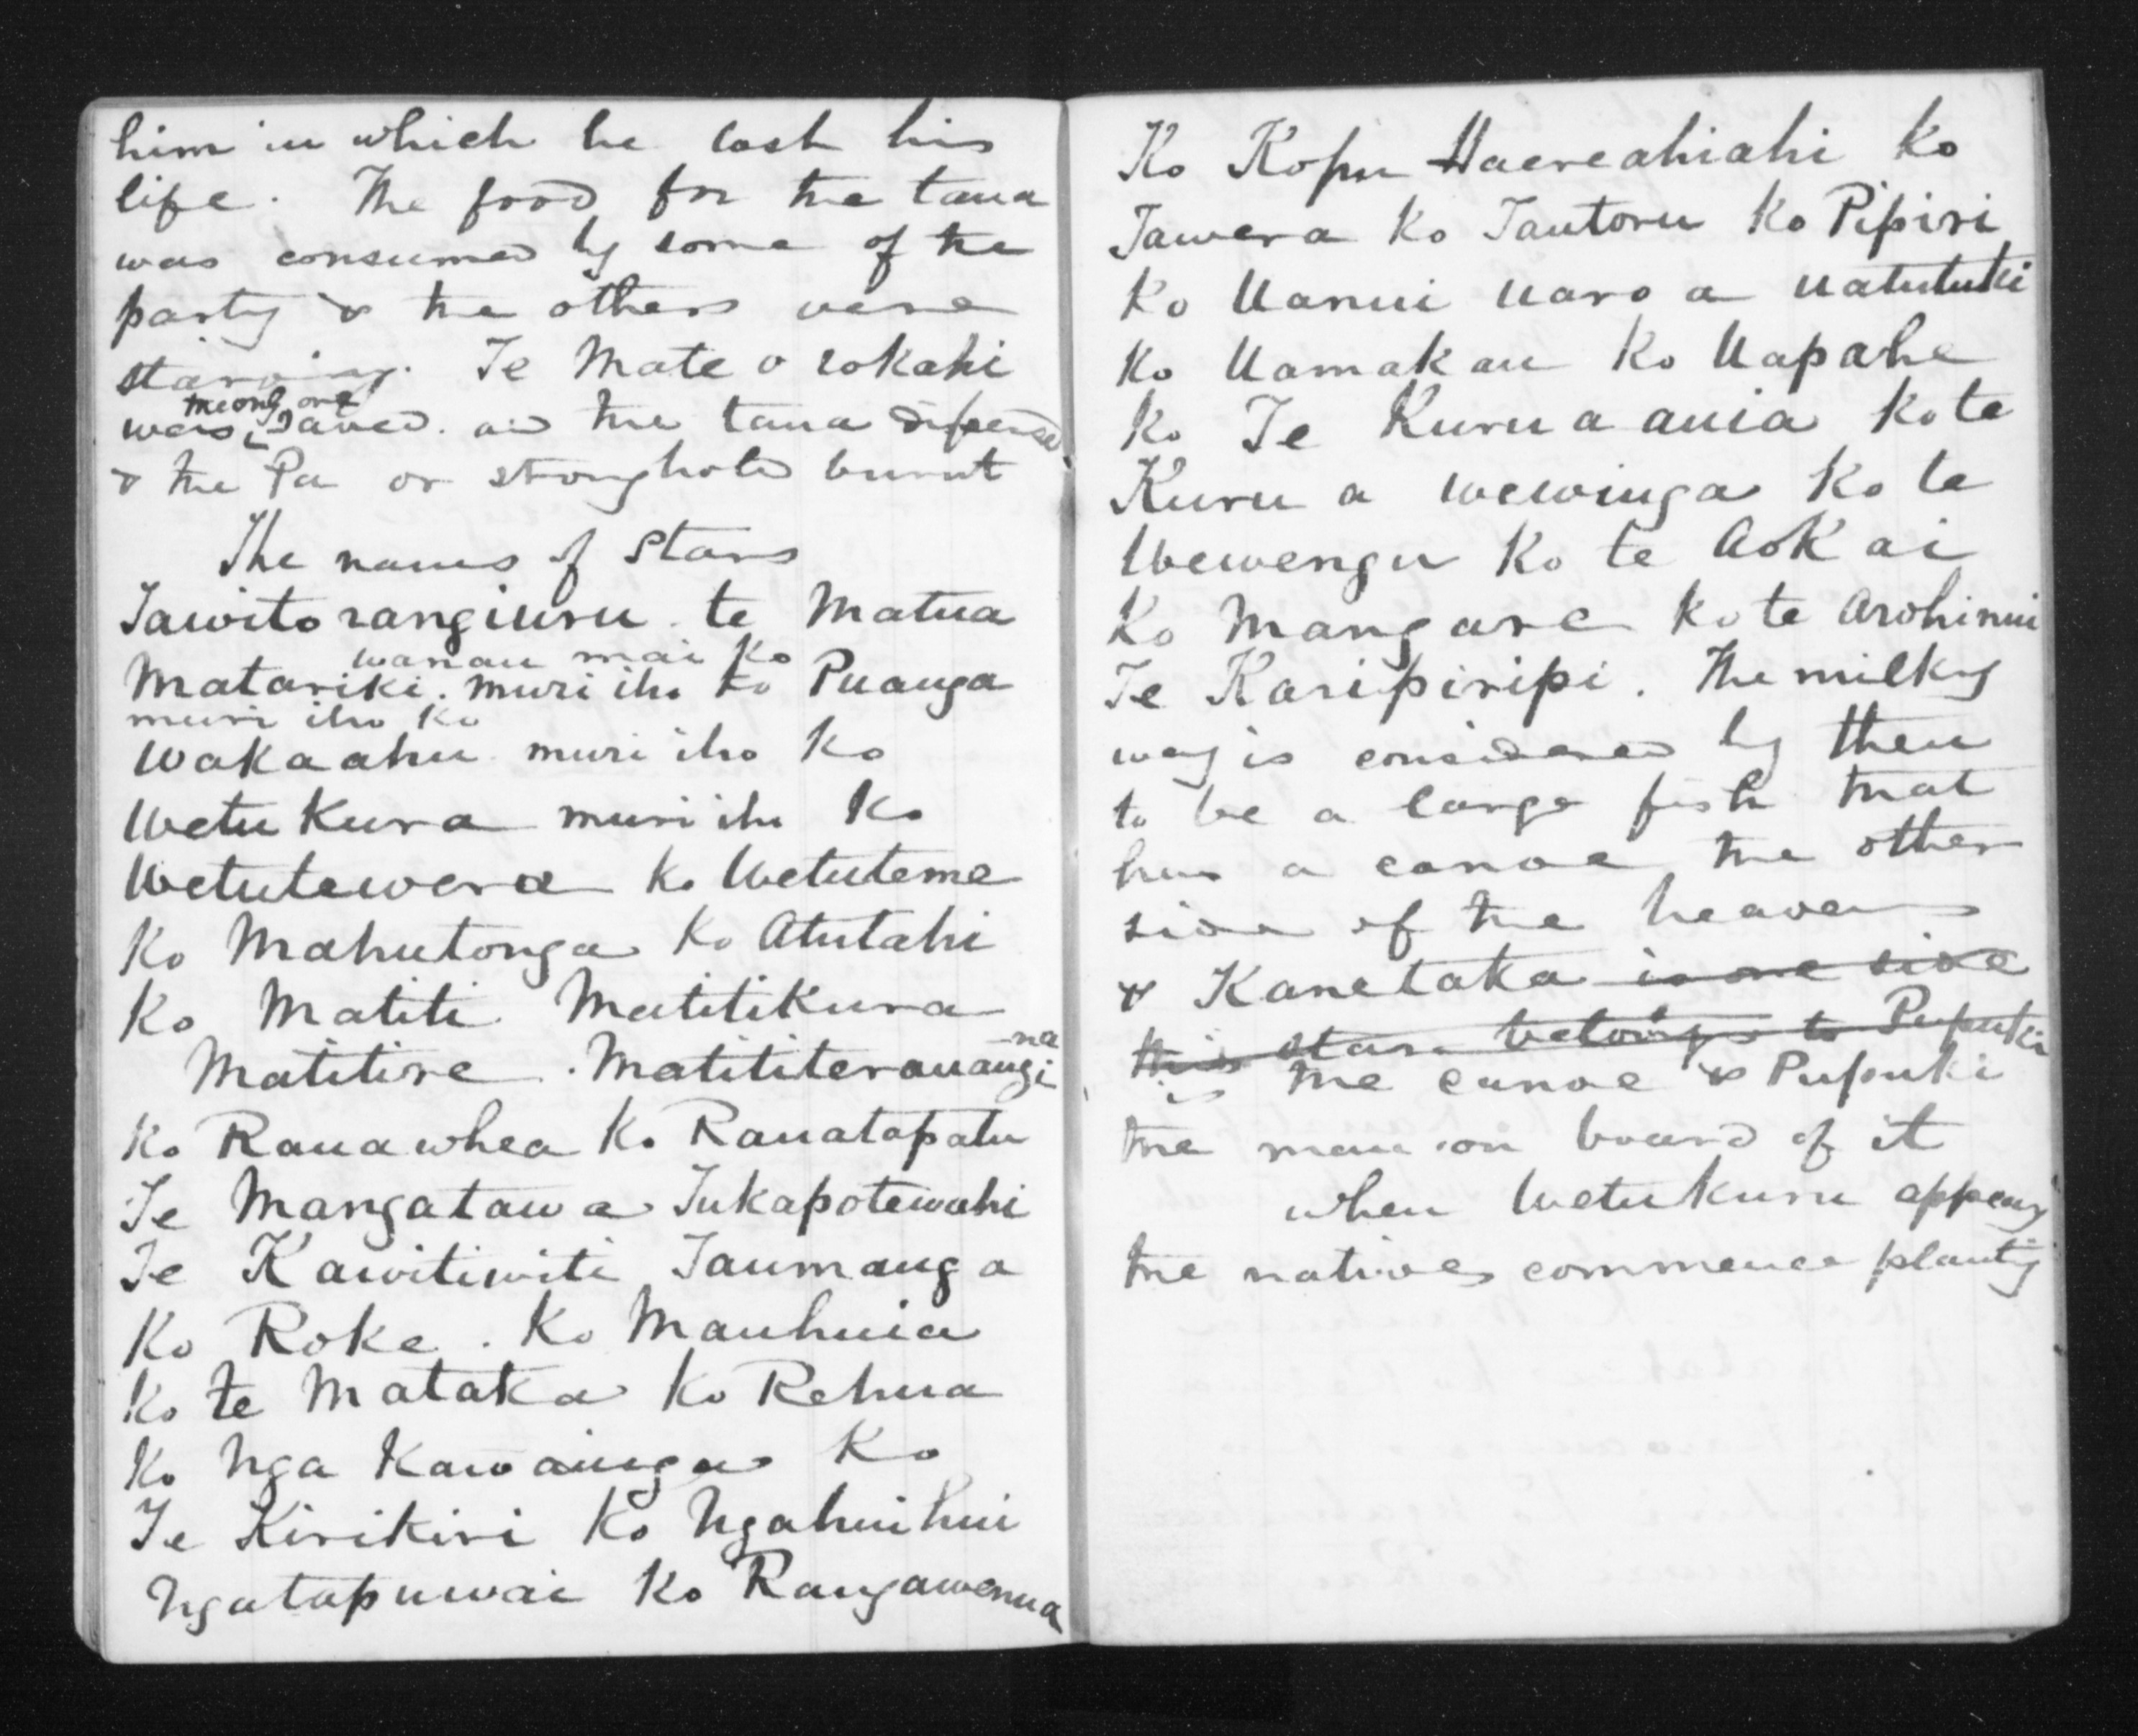 him in which he lost his
life. The food for the taua
was consumed by some of the
party & the others were
starving. Te Mate o rokahi
the only one
was saved. and the taua dispersed
& the Pa or stronghold burnt
The names of Stars
Tawitorangiuru te Matua
wanau mai ko
Matariki. muri iho ko Puanga
muri iho ko
Wakaahu muri iho Ko
Wetu Kura muri iho Ko
Wetutewera Ko Wetuteme
Ko Mahutonga Ko Atutahi
Ko Matiti Matitikura
na
Matitire. Matititerauangi
Ko Rauawhea Ko Rauatapatu
Te Mangatawa Tukapotewahi
Te Kawitiwiti Taumanga
Ko Roke. Ko Mauhuia
Ko te Mataka Ko Rehua
Ko Nga Kawainga Ko
Te Kirikiri Ko Ngahuihui
Ngatapuwai Ko Rangawenua
Ko Kopu Haereahiahi Ko
Tawera Ko Tautoru Ko Pipiri
Ko Uanui Uaro a Uatutuki
Ko Uamakau Ko Uapahe
Ko Te Kuru a ania Ko te
Kuru a wewinga Ko te
Wewengu Ko te Aokai
Ko Mangare Ko te Arohinui
Te Karipiripi. The milky
way is considered by them
to be a large fish that
has a canoe the other
side of the heaven
& Kanetaka is one side
this star belongs to Pupuki
is the canoe & Pupuki
the man on board of it
when Wetukuru appears
the natives commence planting